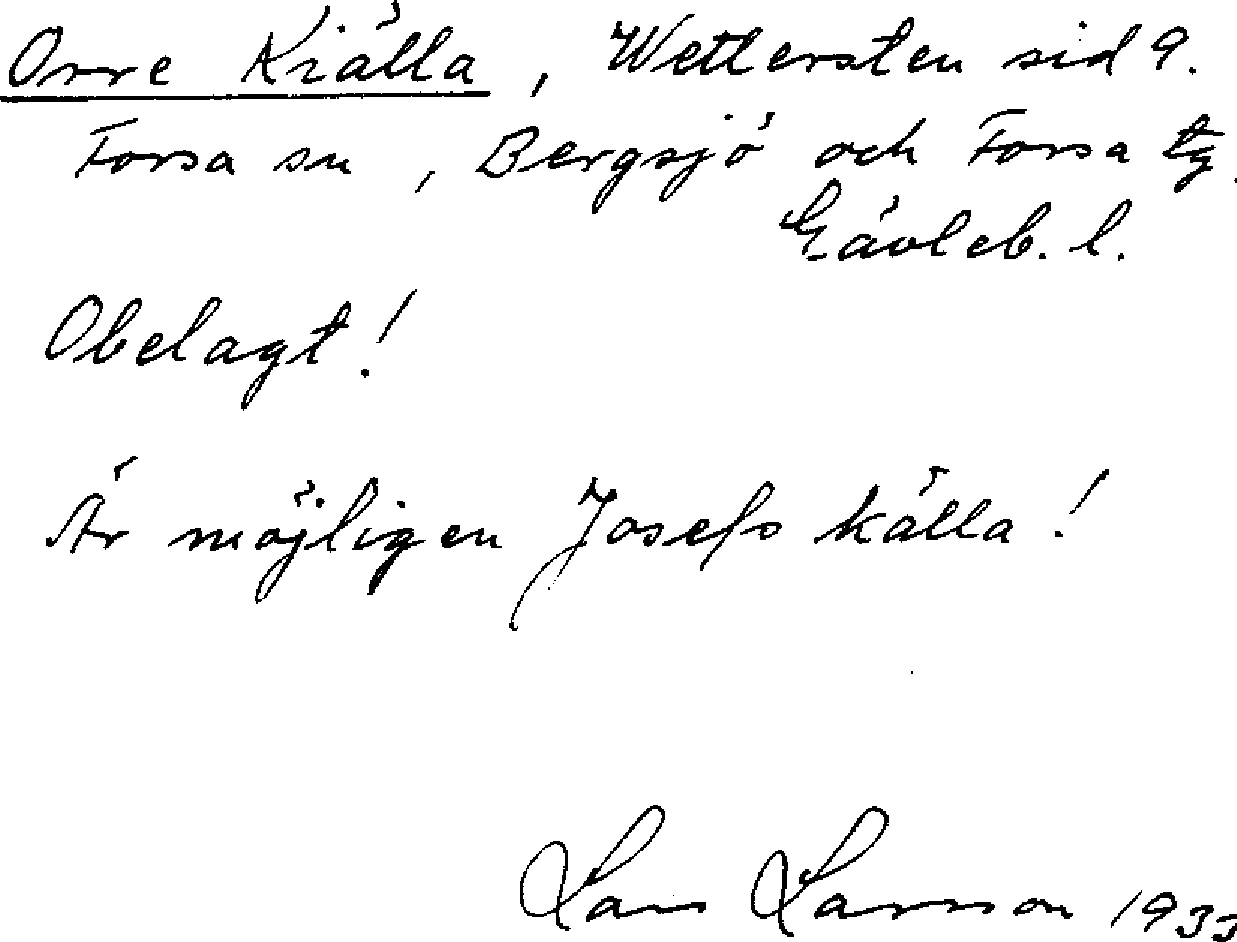 Orre Kiälla, Wettersten sid 9.
Forsa sn, Bergsjö och Forsa tg.
Gävleb. l.
Obelagt!
Är möjligen Josefs källa!
Lars Larsson 1933